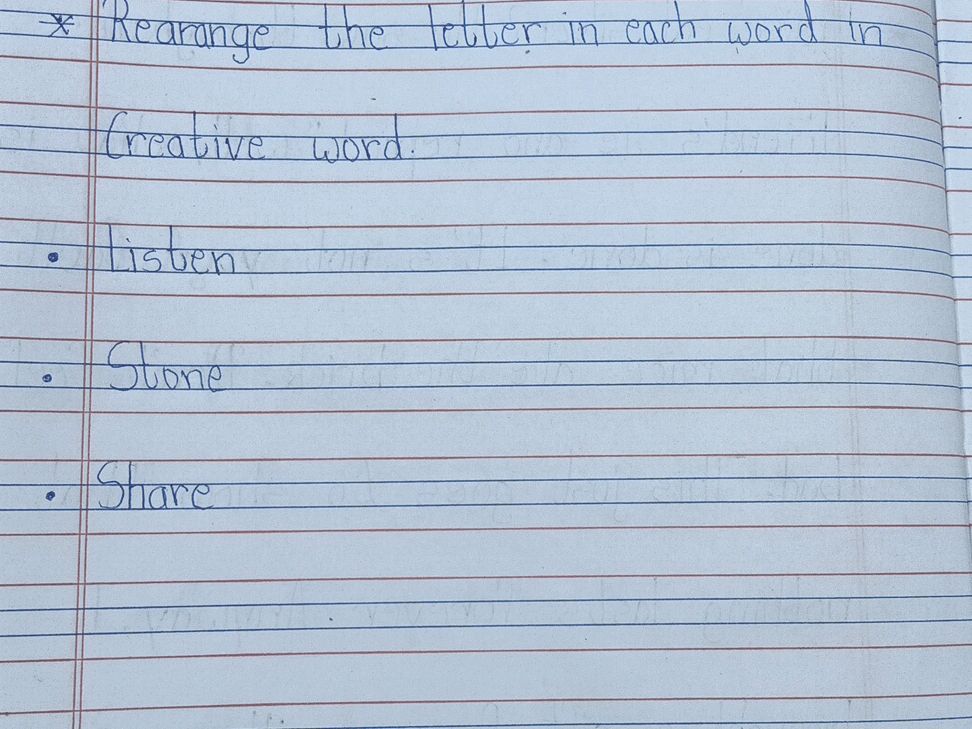 * Rearange the letter in each word in
Creative word.
• Listen
• Stone
• Share